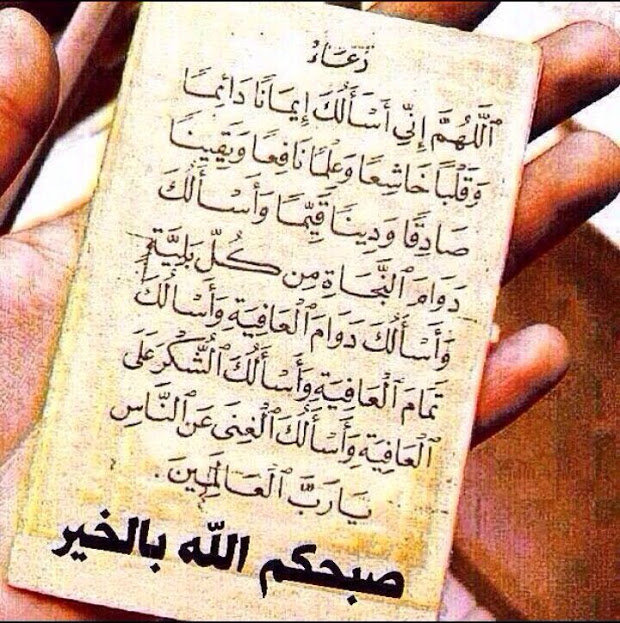 دُعَاءٌ
ٱللَّهُمَّ إِنِّي أَسْأَلُكَ إِيمَانًا دَائِمًا
وَقَلْبًا خَاشِعًا وَعِلْمًا نَافِعًا وَيَقِينًا
صَادِقًا وَدِينًا قَيِّمًا وَأَسْأَلُكَ
دَوَامَ ٱلنَّجَاةِ مِن كُلِّ بَلِيَّةٍ
وَأَسْأَلُكَ دَوَامَ ٱلْعَافِيَةِ وَأَسْأَلُكَ
تَمَامَ ٱلْعَافِيَةِ وَأَسْأَلُكَ ٱلشُّكْرَ عَلَى
ٱلْعَافِيَةِ وَأَسْأَلُكَ ٱلْغِنَى عَنِ ٱلنَّاسِ
يَارَبَّ ٱلْعَالَمِينَ .
صبحكم الله بالخير